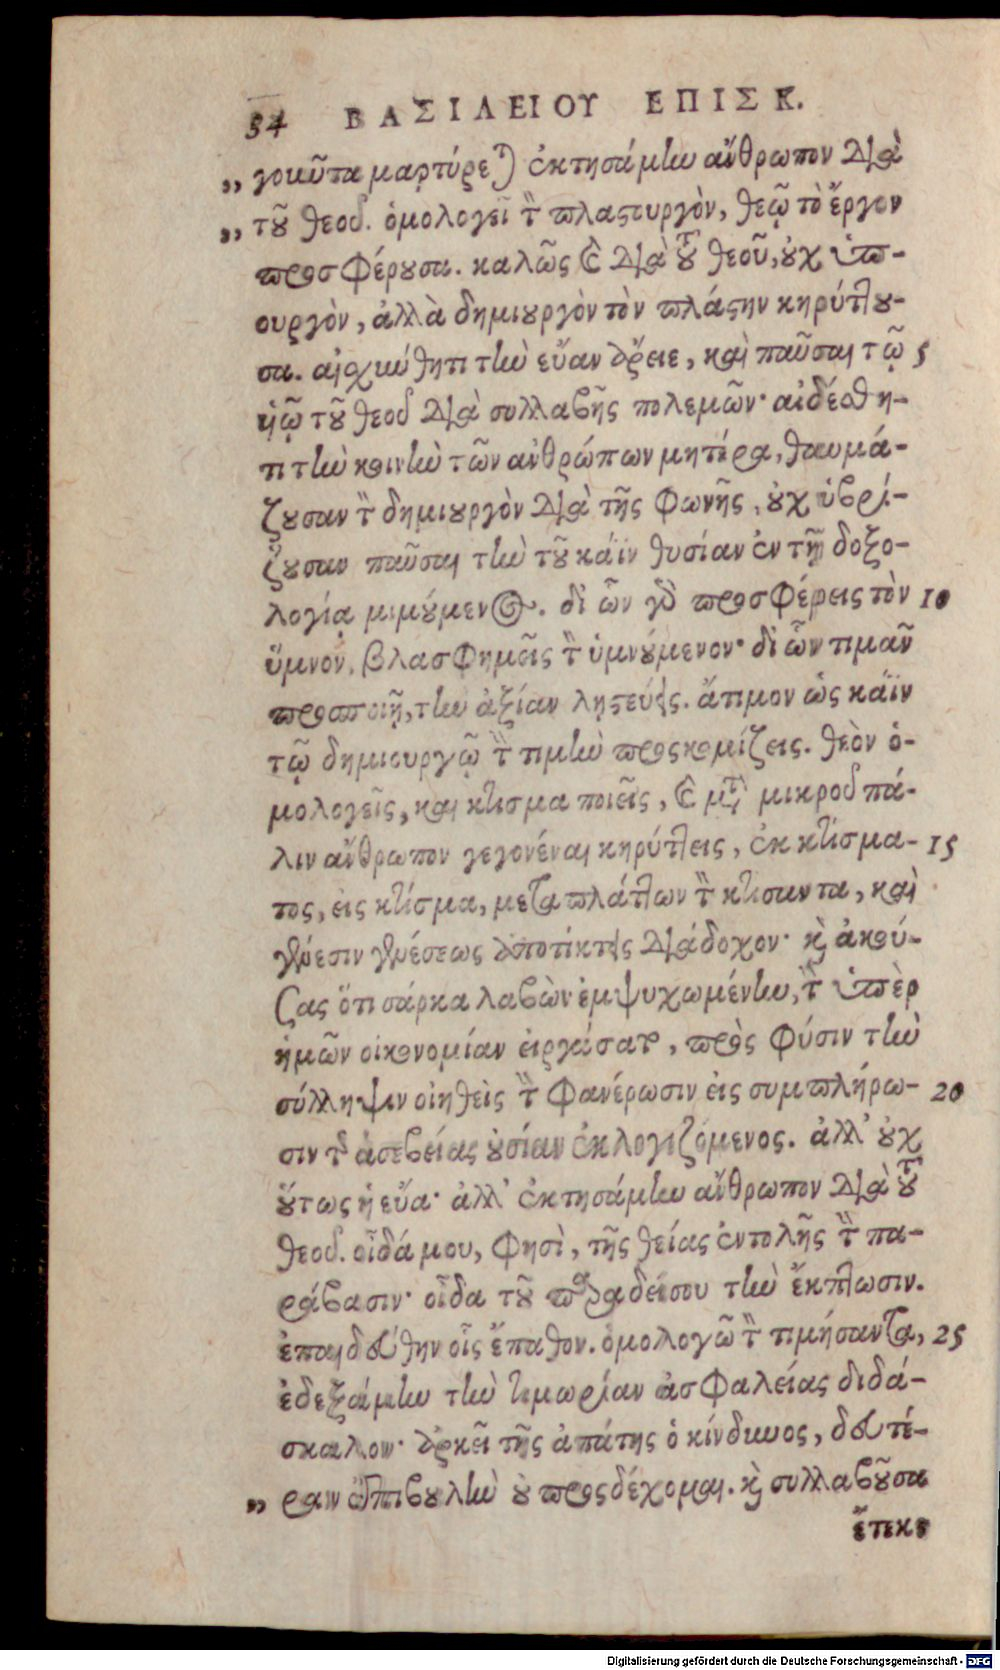 54 ΒΑΣΙΛΕΙΟΥ ΕΠΙΣΚ.
„ γοῦντα μαρτύρεται ἐκτησάμην ἄνθρωπον διὰ
„ τοῦ θεοῦ. ὁμολογεῖ τὸν πλαστουργὸν, θεῷ τὸ ἔργον
προσφέρουσα. καλῶς καὶ διὰ τοῦ θεοῦ, οὐχ ὑπ-
ουργὸν, ἀλλὰ δημιουργὸν τὸν πλάστην κηρύττου-
σα. αἰσχύνθητι τὴν εὔαν ἄρειε, καὶ παῦσαι τῷ 5
υἱῷ τοῦ θεοῦ διὰ συλλαβῆς πολεμῶν· αἰδέσθη-
τι τὴν κοινὴν τῶν ἀνθρώπων μητέρα, θαυμά-
ζουσαν τὸν δημιουργὸν διὰ τῆς φωνῆς, οὐχ ὑβρί-
ζουσαν παῦσαι τὴν τοῦ κάϊν θυσίαν ἐν τῇ δοξο-
λογίᾳ μιμούμενος. δι' ὧν γὰρ προσφέρεις τὸν 10
ὕμνον, βλασφημεῖς τὸν ὑμνούμενον· δι' ὧν τιμᾶν
προσποιῇ, τὴν ἀξίαν λῃστεύεις. ἄτιμον ὡς κάϊν
τῷ δημιουργῷ τὴν τιμὴν προσκομίζεις. θεὸν ὁ-
μολογεῖς, καὶ κτίσμα ποιεῖς, καὶ μετὰ μικροῦ πά-
λιν ἄνθρωπον γεγονέναι κηρύττεις, ἐκ κτίσμα- 15
τος, εἰς κτίσμα, μεταπλάττων τὸν κτίσαντα, καὶ
γένεσιν γενέσεως ἀποτίκτεις διάδοχον· καὶ ἀκού-
σας ὅτι σάρκα λαβὼν ἐμψυχωμένην, τὴν ὑπὲρ
ἡμῶν οἰκονομίαν εἰργάσατο, πρὸς φύσιν τὴν
σύλληψιν οἰηθεὶς τὴν φανέρωσιν εἰς συμπλήρω- 20
σιν τῆς ἀσεβείας οὐσίαν ἐκλογιζόμενος. ἀλλ' οὐχ
οὕτως ἡ εὔα· ἀλλ' ἐκτησάμην ἄνθρωπον διὰ τοῦ
θεοῦ. οἶδά μου, φησὶ, τῆς θείας ἐντολῆς τὴν πα-
ράβασιν· οἶδα τοῦ παραδείσου τὴν ἔκπτωσιν.
ἐπαιδεύθην οἷς ἔπαθον. ὁμολογῶ τὸν τιμήσαντα, 25
ἐδεξάμην τὴν τιμωρίαν ἀσφαλείας διδά-
σκαλον· ἀρκεῖ τῆς ἀπάτης ὁ κίνδυνος, δευτέ-
„ ραν ἐπιβουλὴν οὐ προσδέχομαι. καὶ συλλαβοῦσα
ἔτεκε
Digitalisierung gefördert durch die Deutsche Forschungsgemeinschaft - DFG